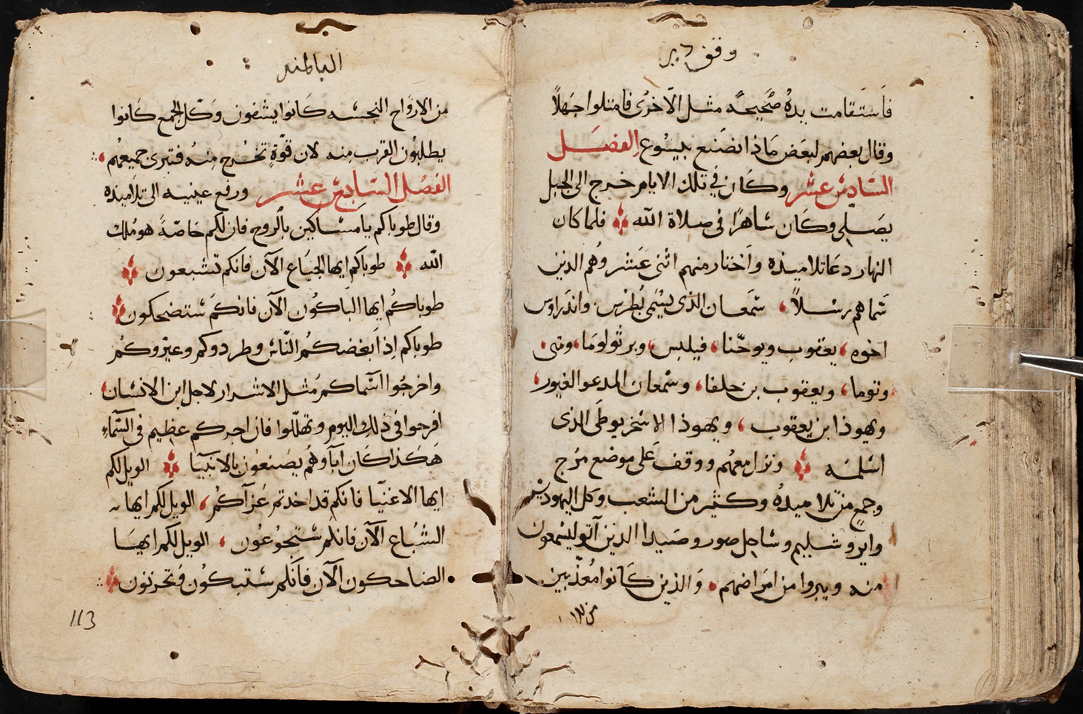 وقف دير
فاستقامت يده صحيحه مثل الاخرى فامتلوا جهلاً
وقال بعضهم لبعض ماذا نصنع بيسوع الفصل
السادس عشر وكان في تلك الايام خرج الى الجبل
يصلى وكان ساهرًا فى صلاة الله فلما كان
النهار دعا تلاميذه واختار منهم اثنى عشر وهم الذين
سماهم رسلاً، سمعان الذى يسمى بطرس، واندراوس
اخوه، يعقوب ويوحنا، فيلبس، وبرثولوما، ومتى،
وتوما، ويعقوب بن حلفا، وسمعان المدعو الغيور،
ويهوذا ابن يعقوب، ويهوذا الاسخريوطى الذى
اسلمه ونزل معهم ووقف على موضع مرج
وجمع من تلاميذه وكثير من الشعب وكل اليهوديه
وايروشليم وساحل صور وصيدا الذين آتو ليسمعون
منه ويبروا من امراضهم، والذين كانوا معذبين
من الار
البلمند
من الارواح النجسه كانوا يشفون وكل الجمع كانوا
يطلبون القرب منه لان قوة تخرج منه فتبرى جميعهم،
الفصل السابع عشر ورفع عينيه الى تلاميذه
وقال طوباكم يا مساكين بالروح فان لكم خاصة هو ملك
الله طوباكم ايها الجياع الآن فانكم تشبعون
طوباكم ايها الباكون الآن فانكم ستضحكون
طوباكم اذا ابغضكم الناس وطردوكم وعيروكم
واخرجوا اسماكم مثل الاشرار لاجل ابن الانسان،
افرحوا في ذلك اليوم وتهللوا فان اجركم عظيم في السماء
هكذا كان آباوهم يصنعون بالانبيا الويل لكم
ايها الاغنيا فانكم قد اخدتم عزآكم، الويل لكم ايها
الشباع الآن فانكم ستجوعون، الويل لكم ايها
الضاحكون الآن فانكم ستبكون وتحزنون
113